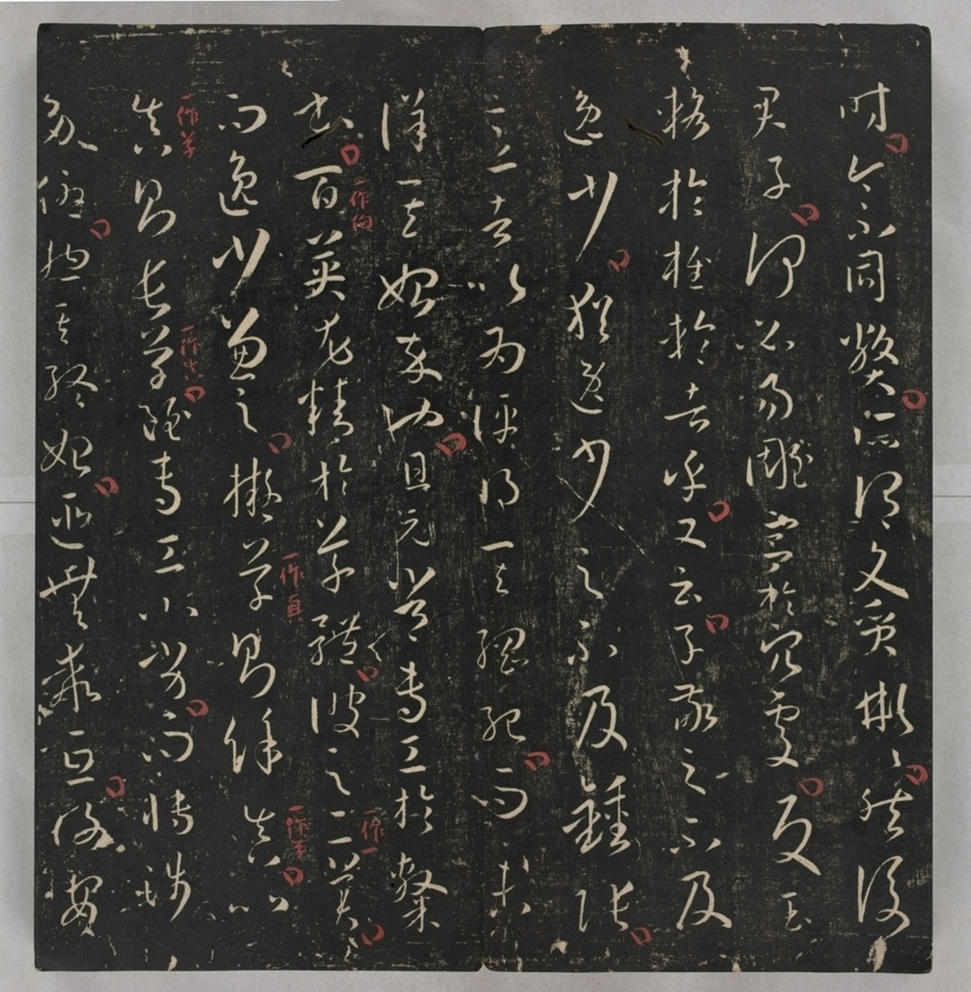 时今不同弊所謂文質彬彬然後
君子何必易雕宫於穴處反玉
輅於椎輪者乎又云子敬之不及
逸少猶逸少之不及鍾張
意者以為評得其綱紀而未
詳其始卒也且元常專工於隸
書百英尤精於草體彼之二美
一作伯
而逸少兼之擬草則餘真比
真則長草雖專工小劣而博涉
一作草
多優揔其終始匪無乖互謝安